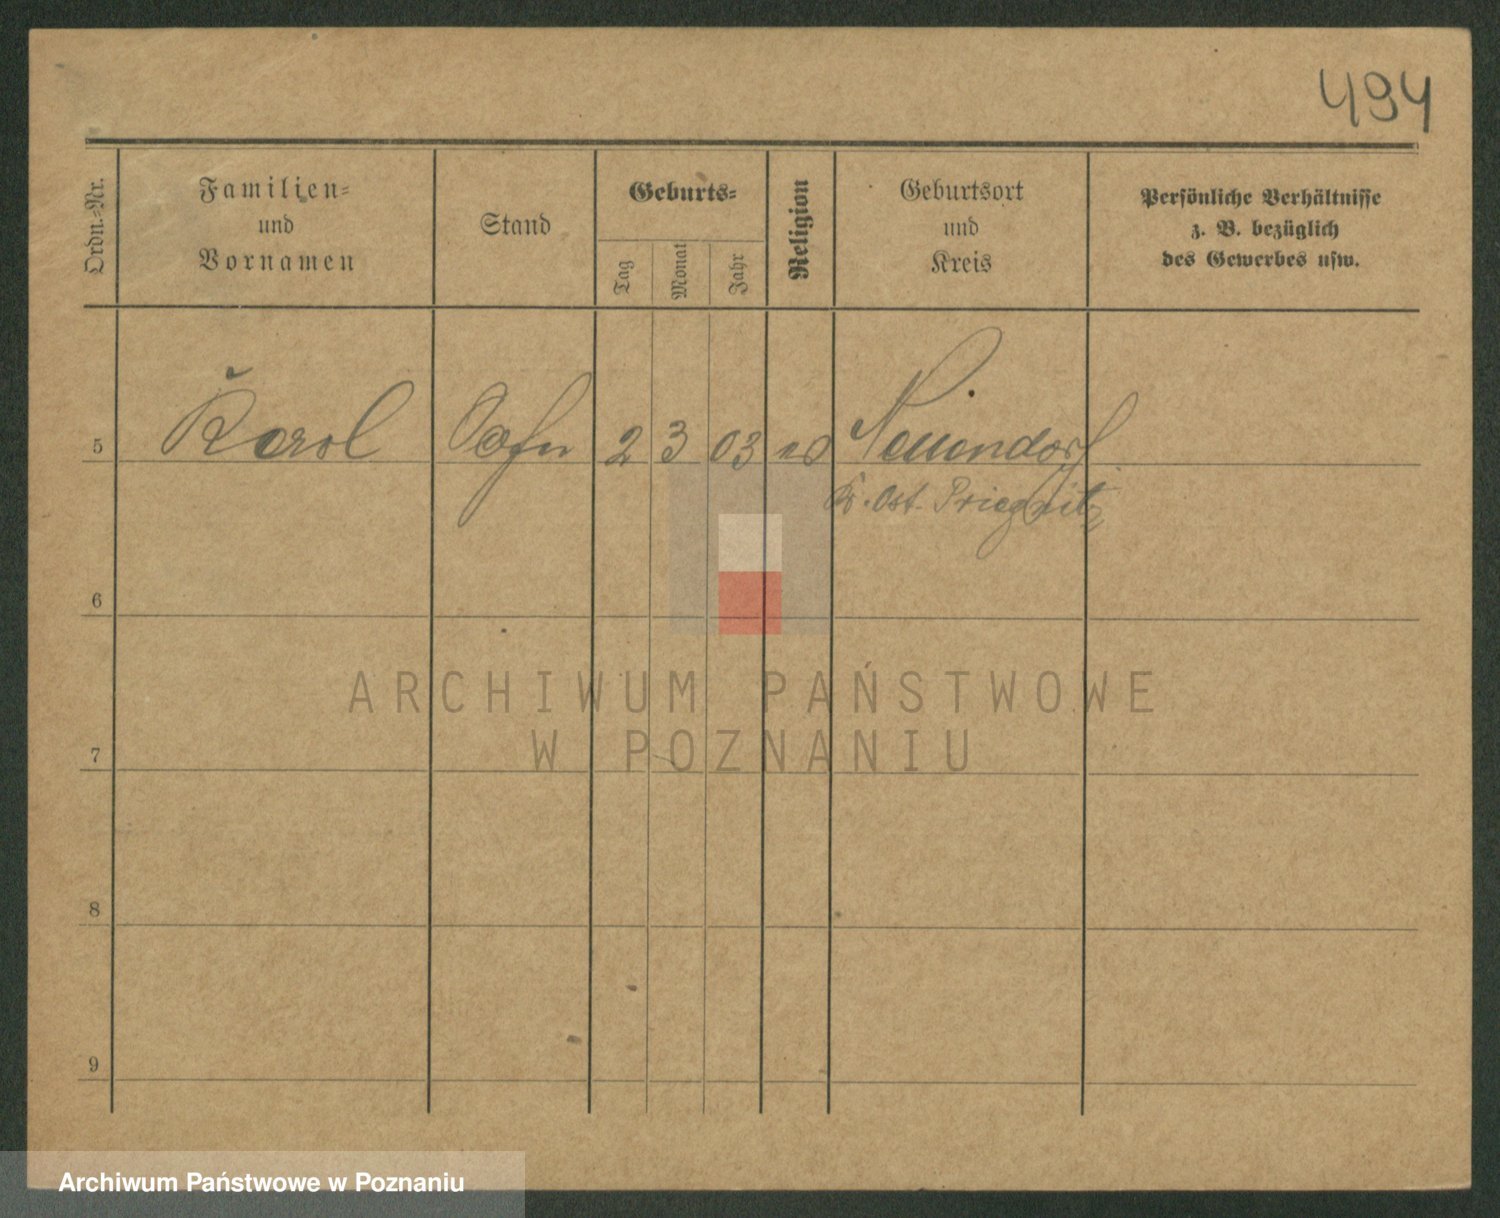 494
Ordn.=Nr.
Familien=
und
Vornamen
Stand
Geburts=
Tag
Monat
Jahr
Religion
Geburtsort
und
Kreis
Persönliche Verhältnisse
z. B. bezüglich
des Gewerbes usw.
5 Karol Sohn 2 3 03 Neuendorf
Kr. Ost. Priegnitz
6
ARCHIWUM PAŃSTWOWE
W POZNANIU
7
8
9
Archiwum Państwowe w Poznaniu